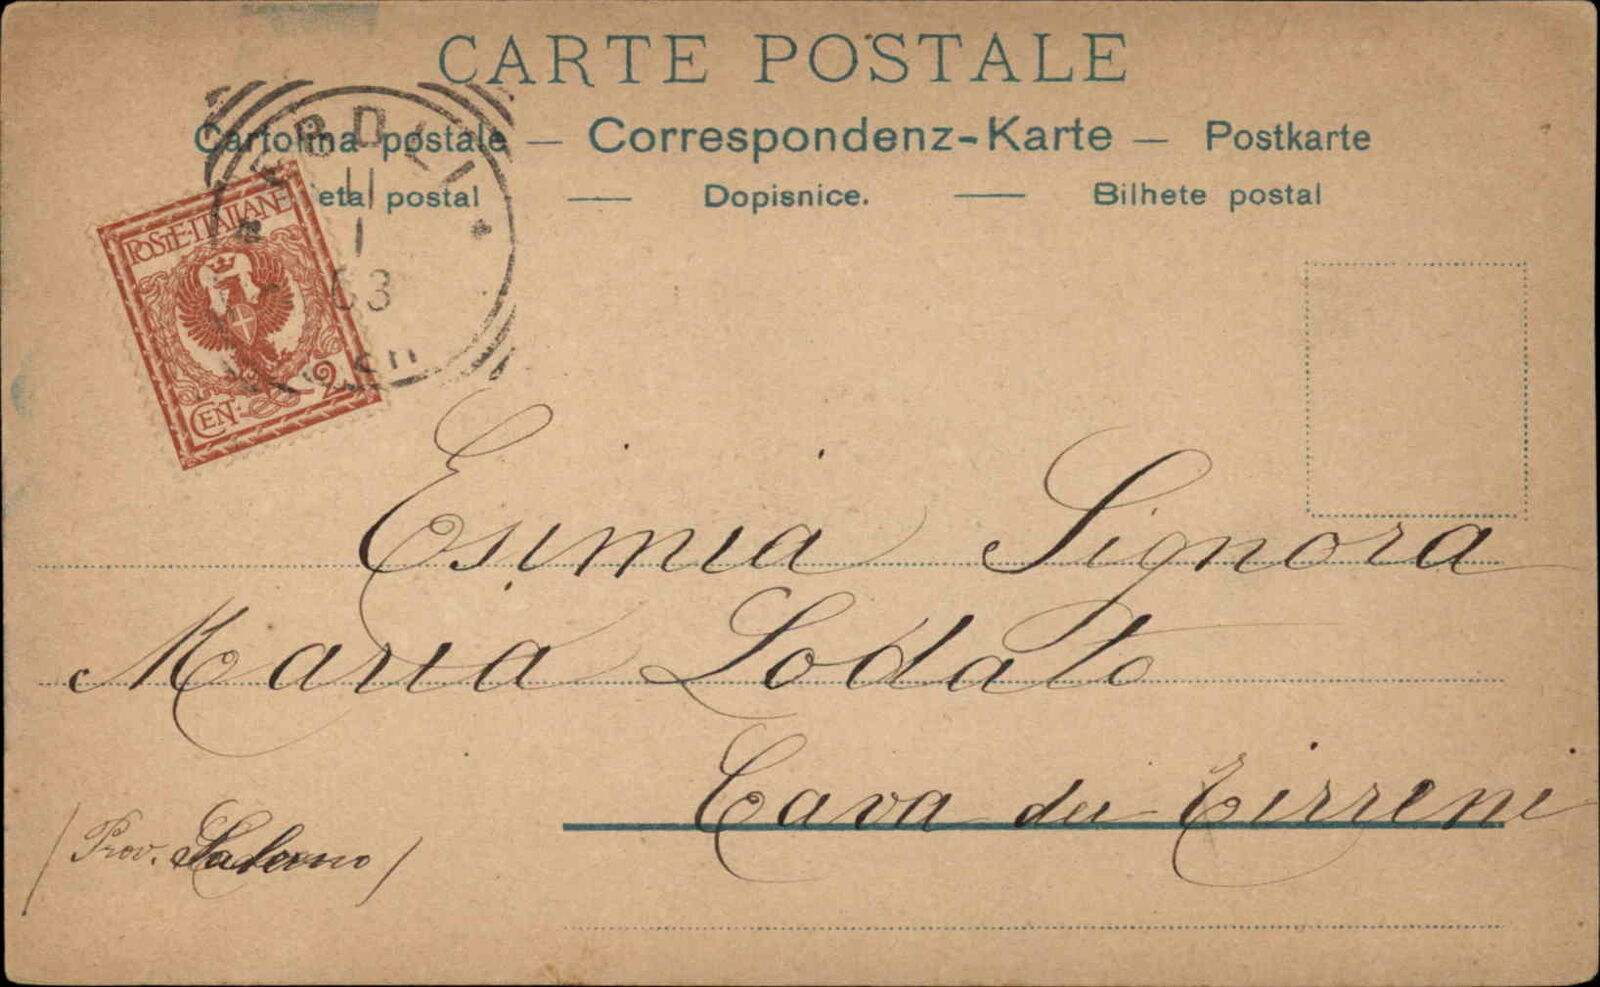 CARTE POSTALE
Cartolina postale — Correspondenz-Karte — Postkarte
eta postal — Dopisnice. — Bilhete postal
EBOLI
11
1
03
POSTE·ITALIANE
CENT. 2
Esimia Signora
Maria Lodato
Cava dei Tirreni
(Prov. Salerno)